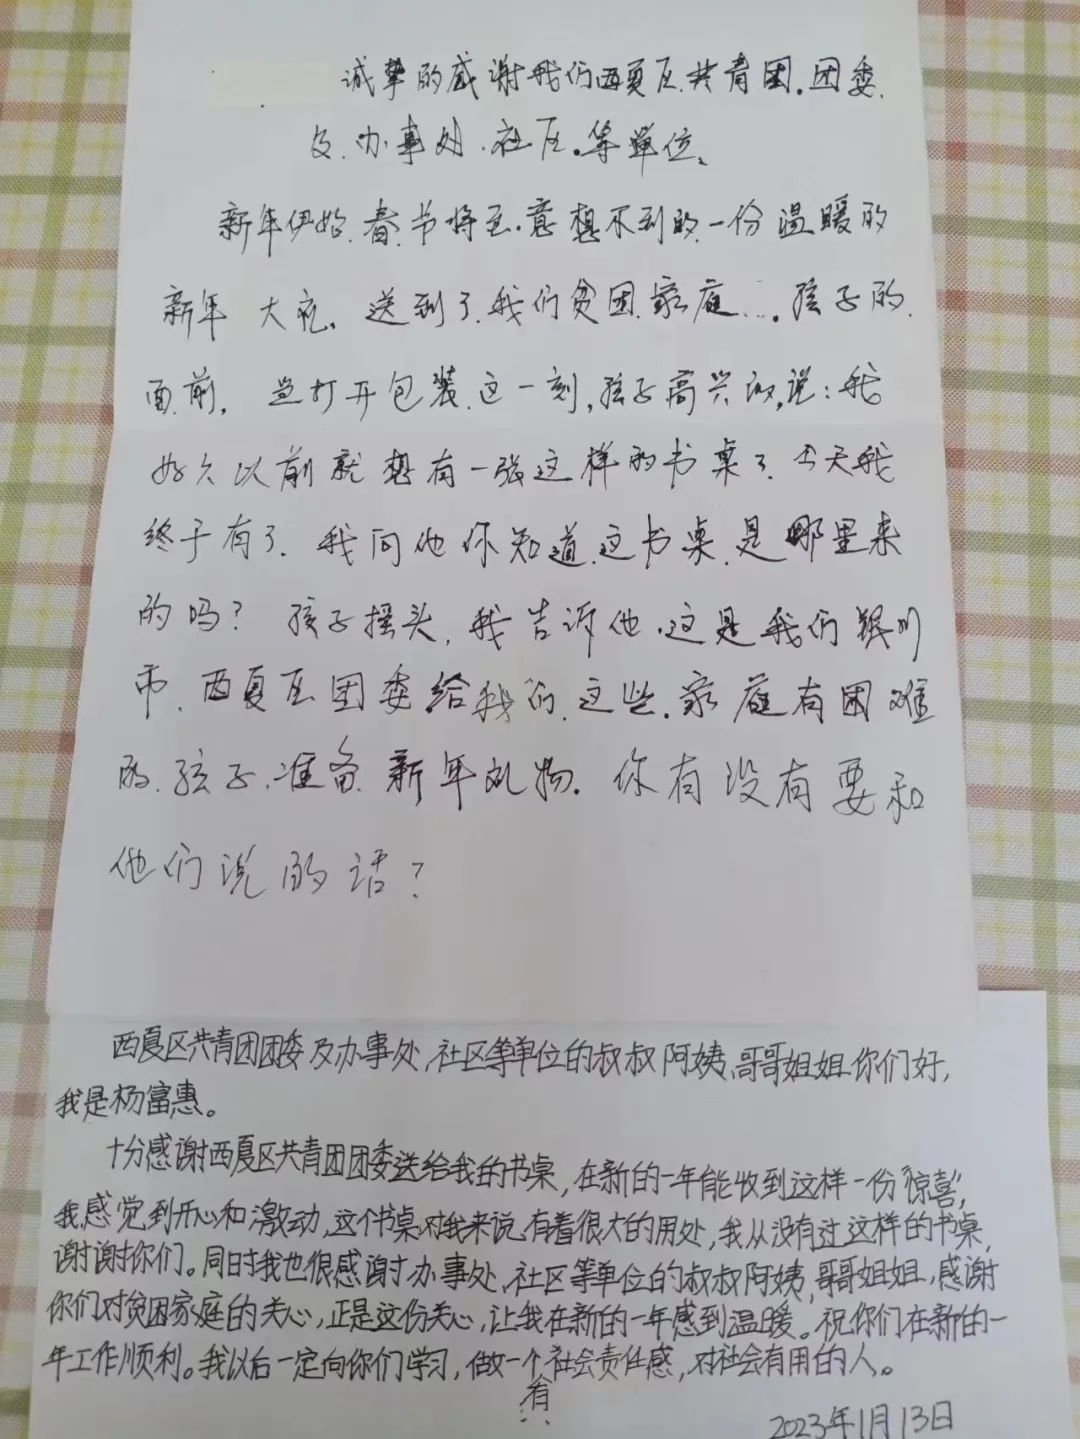 诚挚的感谢我们西夏区.共青团.团委.
及.办事处.社区.等单位。
新年伊始.春节将至.意想不到的.一份温暖的
新年大礼.送到了.我们贫困.家庭....孩子的.
面前.当打开包装.这一刻,孩子高兴的,说:我
好久以前就想有一张这样的书桌了.今天我
终于有了.我问他你知道.这书桌.是哪里来
的吗?孩子摇头.我告诉他.这是我们银川
市.西夏区团委给我们.这些.家庭有困难
的.孩子.准备.新年礼物.你有没有要和
他们说的话?
西夏区共青团团委及办事处,社区等单位的叔叔阿姨,哥哥姐姐你们好,
我是杨富惠。
十分感谢西夏区共青团团委送给我的书桌,在新的一年能收到这样一份“惊喜”,
我感觉到开心和激动,这个书桌对我来说有着很大的用处,我从没有过这样的书桌,
谢谢你们。同时我也很感谢办事处,社区等单位的叔叔阿姨,哥哥姐姐,感谢
你们对贫困家庭的关心,正是这份关心,让我在新的一年感到温暖。祝你们在新的一
年工作顺利。我以后一定向你们学习,做一个有社会责任感,对社会有用的人。
2023年1月13日